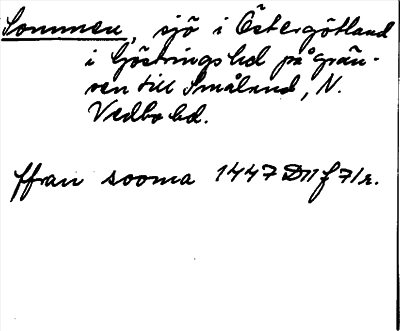 Sommen, sjö i Östergötland
i Göstrings hd på grän-
sen till Småland, N.
Vedbo hd.
ffran sooma 1447 DN f 71 r.